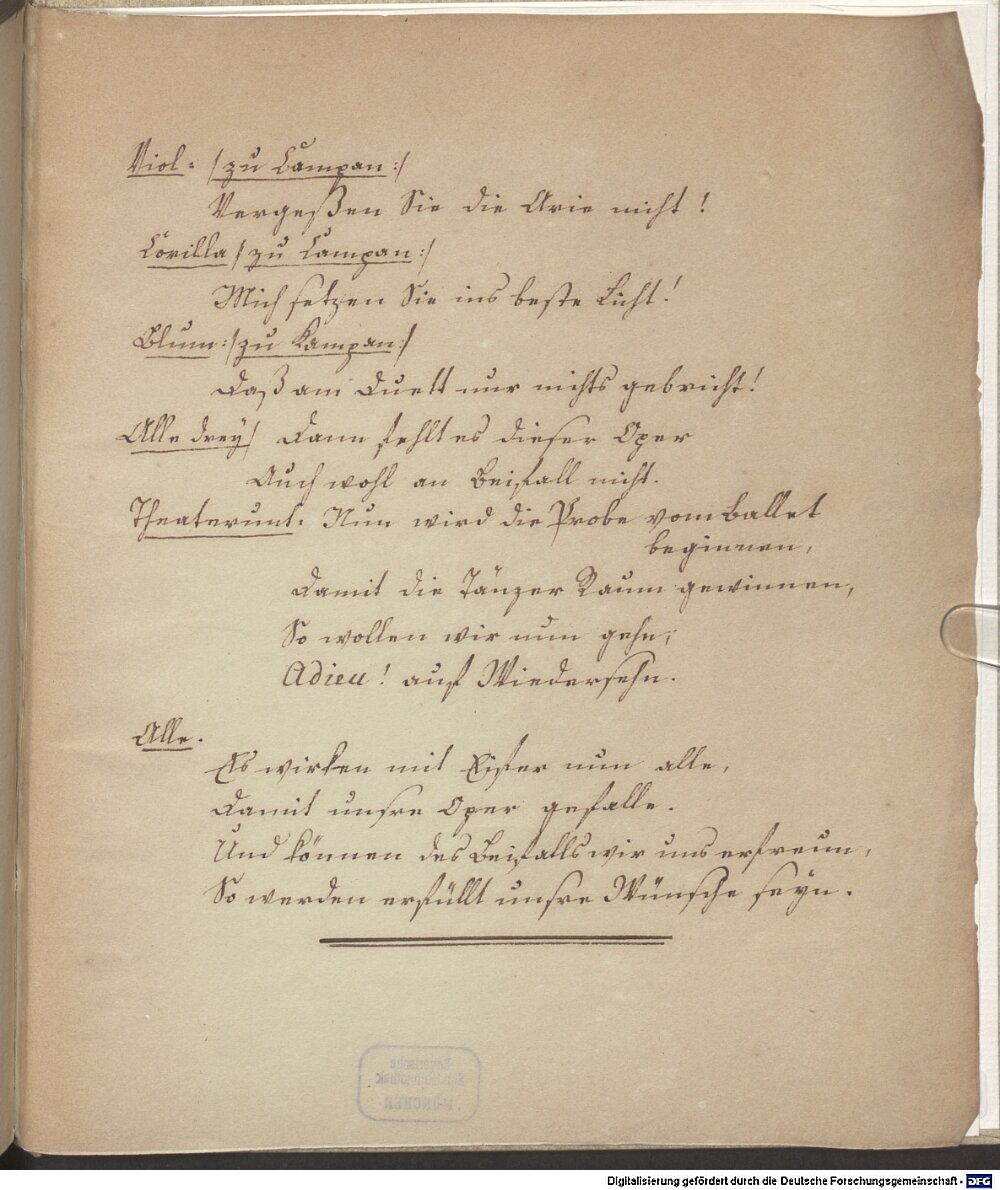 Viol: /zu Campan:/
Vergeßen Sie die Arie nicht!
Corilla /zu Campan:/
Mich setzen Sie ins beste Licht!
Blum:/zu Kampan:/
Daß am Duett nur nichts gebricht!
Alle drey/ Dann fehlt es dieser Oper
Auch wohl an Beifall nicht.
Theaterunt. Nun wird die Probe vom Ballet
beginnen,
Damit die Tänzer Raum gewinnen,
So wollen wir nun gehn;
Adieu! auf Wiedersehn.
Alle.
Es wirken mit Eifer nun alle,
Damit unsre Oper gefalle.
Und können des Beifalls wir uns erfreun,
So werden erfüllt unsre Wünsche seyn.
Bayerische
Staatsbibliothek
MÜNCHEN
Digitalisierung gefördert durch die Deutsche Forschungsgemeinschaft - DFG